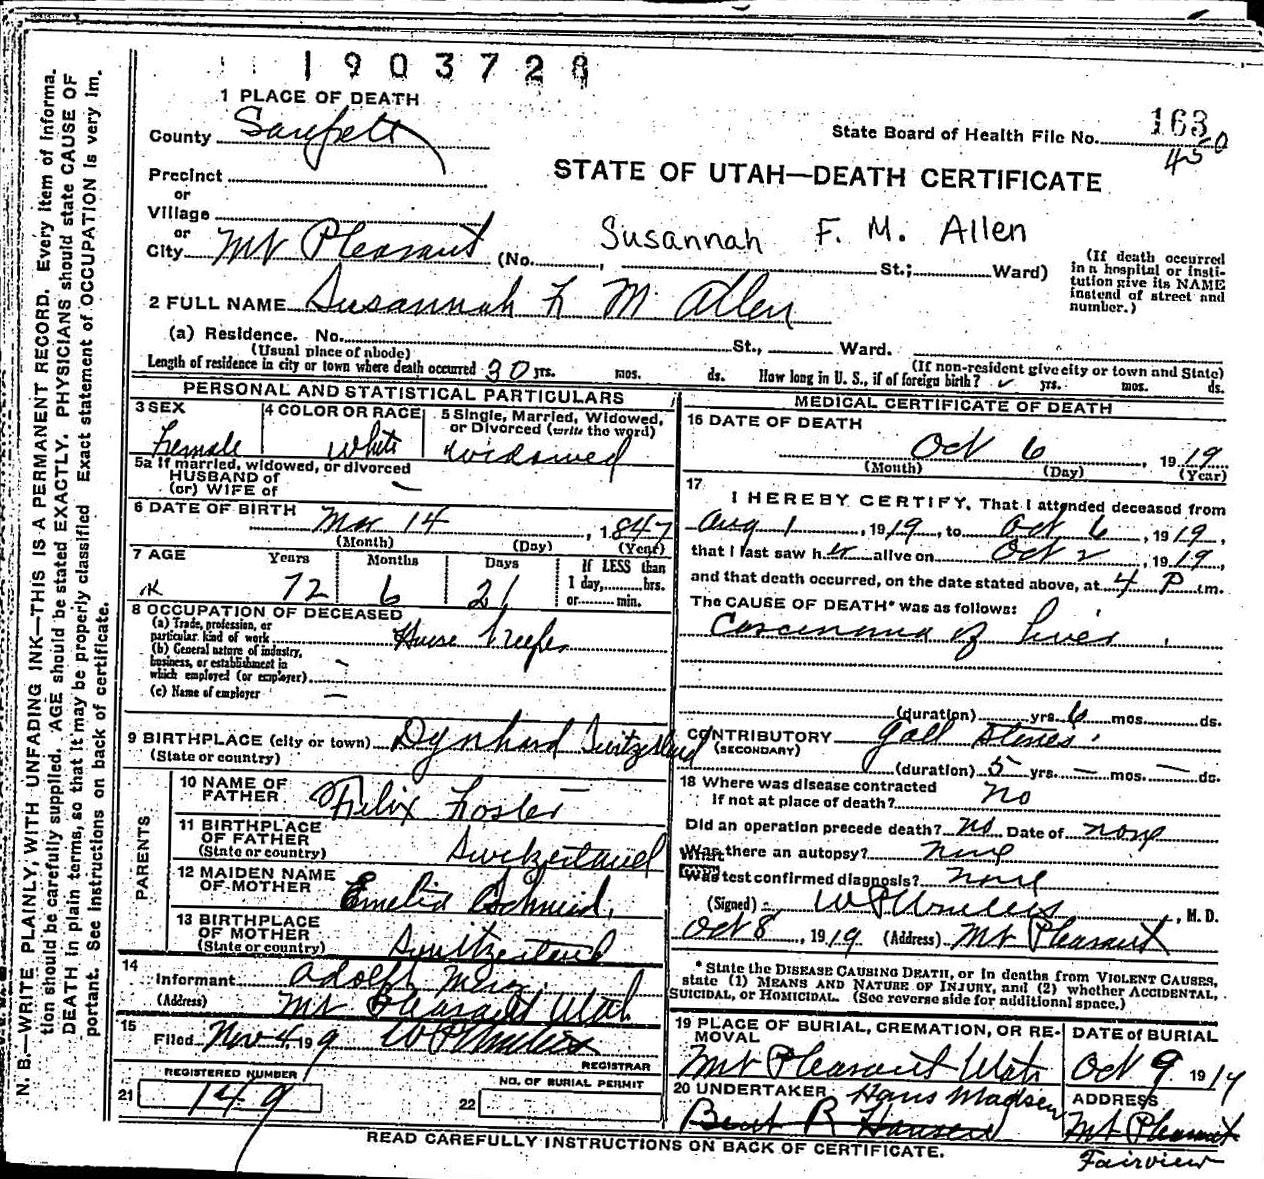 1903728
1 PLACE OF DEATH
County Sanpete
State Board of Health File No. 163
450
Precinct
or
Village
or
City Mt Pleasant (No. , St.; Ward)
STATE OF UTAH—DEATH CERTIFICATE
Susannah F. M. Allen
(If death occurred in a hospital or institution give its NAME instead of street and number.)
2 FULL NAME Susannah F M Allen
(a) Residence. No. St., Ward.
(Usual place of abode) (If non-resident give city or town and State)
Length of residence in city or town where death occurred 30 yrs. mos. ds. How long in U. S., if of foreign birth? yrs. mos. ds.
PERSONAL AND STATISTICAL PARTICULARS
3 SEX
Female
4 COLOR OR RACE
White
5 Single, Married, Widowed, or Divorced (write the word)
Widowed
5a If married, widowed, or divorced
HUSBAND of
(or) WIFE of —
6 DATE OF BIRTH Mar 14, 1847
(Month) (Day) (Year)
7 AGE Years Months Days If LESS than
1 day, hrs.
or min.
72 6 21
8 OCCUPATION OF DECEASED
(a) Trade, profession, or
particular kind of work House Keeper
(b) General nature of industry,
business, or establishment in
which employed (or employer)
(c) Name of employer —
9 BIRTHPLACE (city or town) Dynhard Switzerland
(State or country)
PARENTS
10 NAME OF
FATHER Felix Foster
11 BIRTHPLACE
OF FATHER
(State or country) Switzerland
12 MAIDEN NAME
OF MOTHER Emelia Schmid
13 BIRTHPLACE
OF MOTHER
(State or country) Switzerland
14
Informant Adolph Merz
(Address) Mt Pleasant Utah
15
Filed Nov 4 19 9
REGISTRAR
REGISTERED NUMBER
21 149
NO. OF BURIAL PERMIT
22
MEDICAL CERTIFICATE OF DEATH
16 DATE OF DEATH
Oct 6, 1919
(Month) (Day) (Year)
17
I HEREBY CERTIFY, That I attended deceased from
Aug 1, 1919, to Oct 6, 1919,
that I last saw her alive on Oct 2, 1919,
and that death occurred, on the date stated above, at 4 P. m.
The CAUSE OF DEATH* was as follows:
Carcinoma of liver
(duration) yrs. 6 mos. ds.
CONTRIBUTORY Gall Stones
(SECONDARY)
(duration) 5 yrs. — mos. — ds.
18 Where was disease contracted
if not at place of death? No
Did an operation precede death? No Date of none
Was there an autopsy? None
What test confirmed diagnosis? None
(Signed) , M. D.
Oct 8, 1919 (Address) Mt Pleasant
* State the DISEASE CAUSING DEATH, or in deaths from VIOLENT CAUSES,
state (1) MEANS AND NATURE OF INJURY, and (2) whether ACCIDENTAL,
SUICIDAL, or HOMICIDAL. (See reverse side for additional space.)
19 PLACE OF BURIAL, CREMATION, OR REMOVAL
Mt Pleasant Utah
DATE of BURIAL
Oct 9 1919
20 UNDERTAKER Hans Madsen
Bent R Hansen
ADDRESS
Mt Pleasant
Fairview
READ CAREFULLY INSTRUCTIONS ON BACK OF CERTIFICATE.
N. B.—WRITE PLAINLY, WITH UNFADING INK—THIS IS A PERMANENT RECORD. Every item of informa-
tion should be carefully supplied. AGE should be stated EXACTLY. PHYSICIANS should state CAUSE OF
DEATH in plain terms, so that it may be properly classified. Exact statement of OCCUPATION is very im-
portant. See instructions on back of certificate.